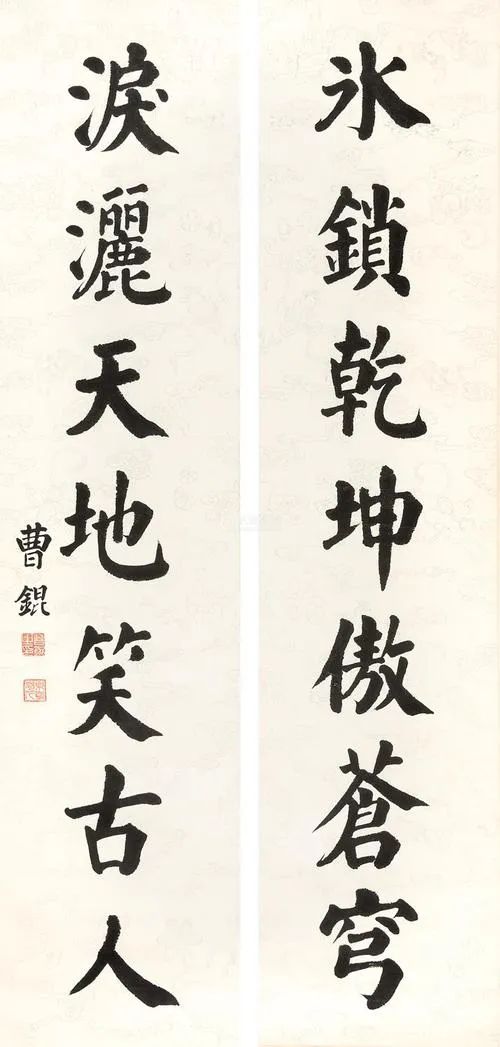 氷鎖乾坤傲蒼穹
淚灑天地笑古人
曹錕